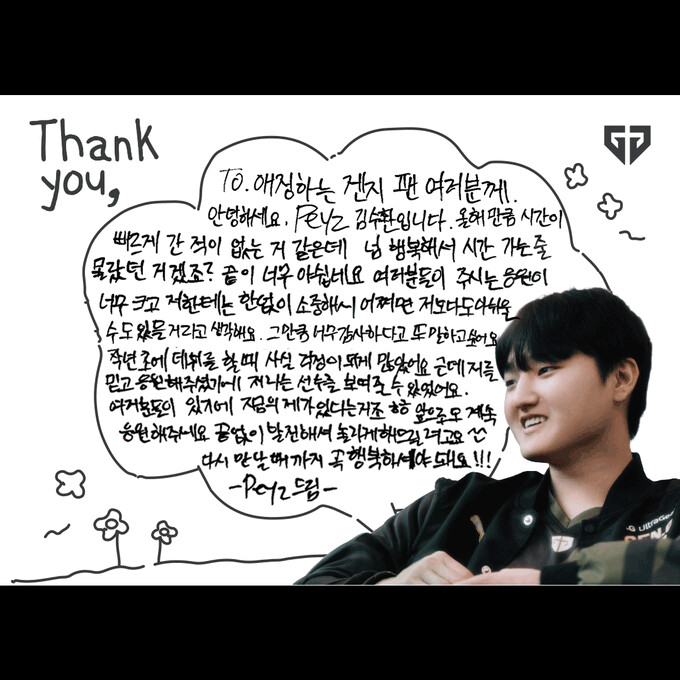 Thank
you,
To. 애정하는 젠지 팬 여러분께.
안녕하세요. Peyz 김수환입니다. 올해만큼 시간이
빠르게 간 적이 없는 거 같은데 넘 행복해서 시간 가는줄
몰랐던 거겠죠? 끝이 너무 아쉽네요 여러분들이 주시는 응원이
너무 크고 저한테는 한없이 소중해서 어쩌면 저보다도 아쉬울
수도 있을 거라고 생각해요. 그만큼 너무 감사하다고 또 말하고 싶어요
작년 초에 데뷔를 할 때 사실 걱정이 되게 많았어요 근데 저를
믿고 응원해주셨기에 저 나는 선수를 보여줄 수 있었어요.
여러분들이 있기에 지금의 제가 있다는거죠 ㅎㅎ 앞으로도 계속
응원해주세요 끝없이 발전해서 놀라게 해드릴려고요 ^^
다시 만날 때까지 꼭 행복하셔야 돼요!!!
-Peyz 드림-
UltraGea
GEN.G